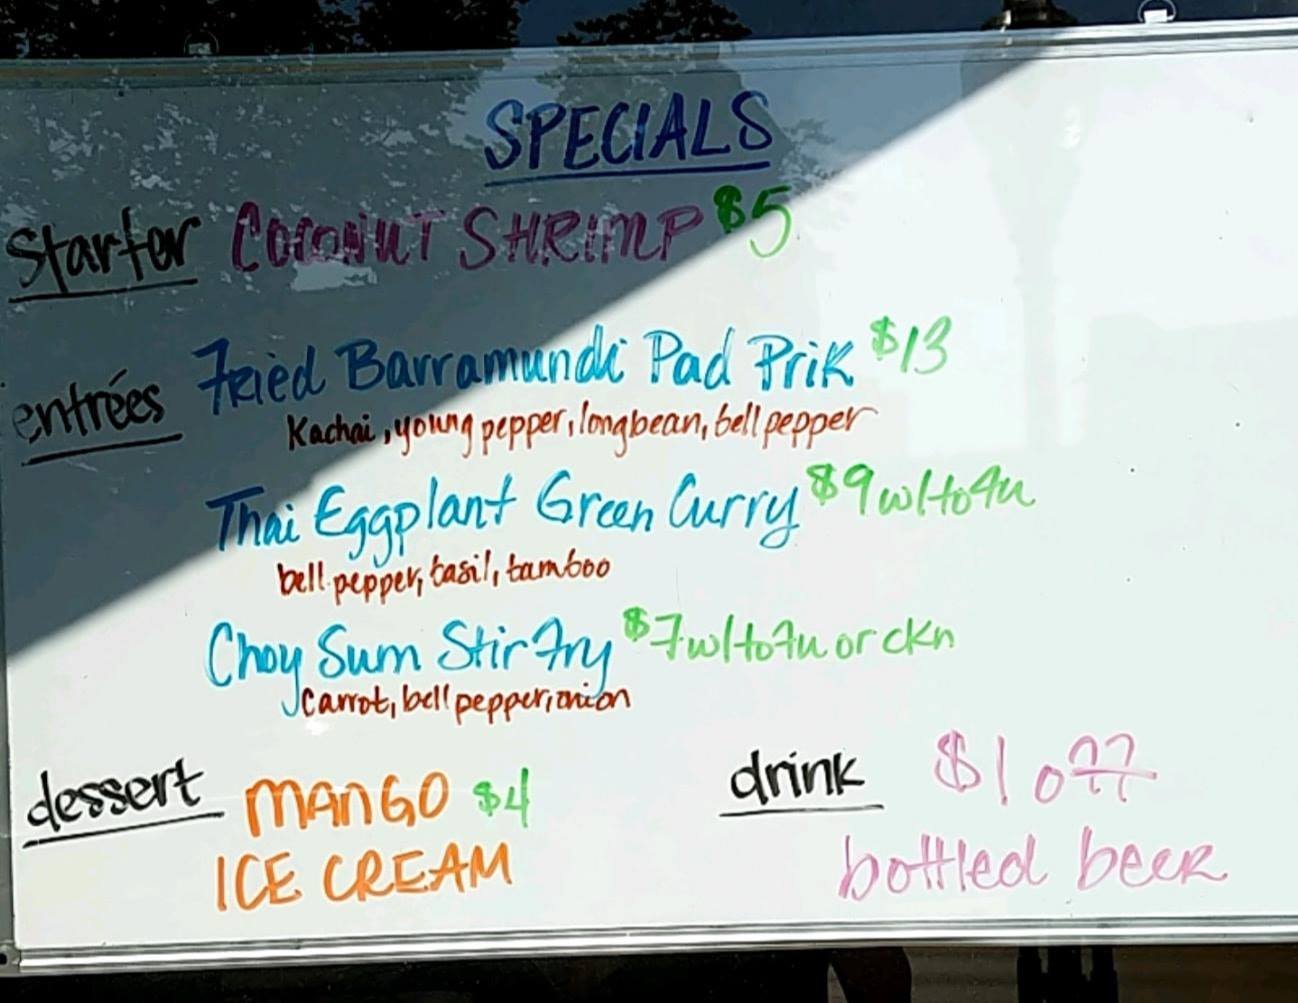 SPECIALS
Starter COCONUT SHRIMP $5
entrées Fried Barramundi Pad Prik $13
Kachai, young pepper, longbean, bell pepper
Thai Eggplant Green Curry $9 w/tofu
bell pepper, basil, bamboo
Choy Sum Stir Fry $7 w/tofu or ckn
Carrot, bell pepper, onion
dessert MANGO $4
ICE CREAM
drink $1 off
bottled beer